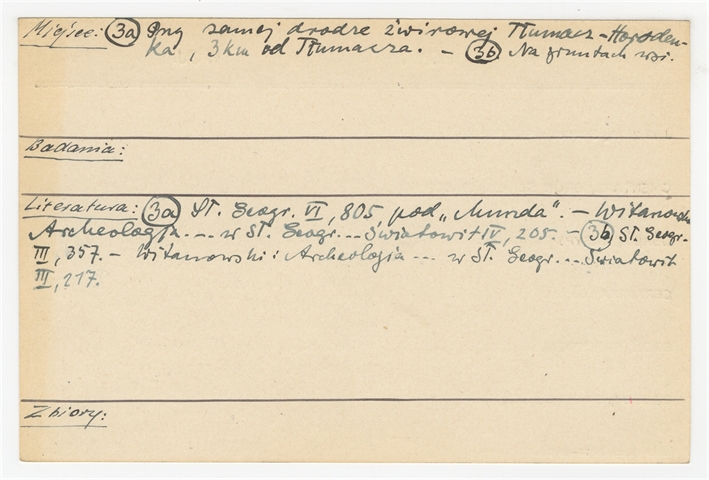 Miejsce: (3a) Przy samej drodze żwirowej Tłumacz-Horoden-
ka, 3 km od Tłumacza. - (3b) Na gruntach wsi.
Badania:
Literatura: (3a) Sł. Geogr. VI, 805, pod „Munda". - Witanowski
Archeologja ... w Sł. Geogr. ... Światowit IV, 205. - (3b) Sł. Geogr.
III, 357. - Witanowski: Archeologja ... w Sł. Geogr. ... Światowit
III, 217.
Zbiory: